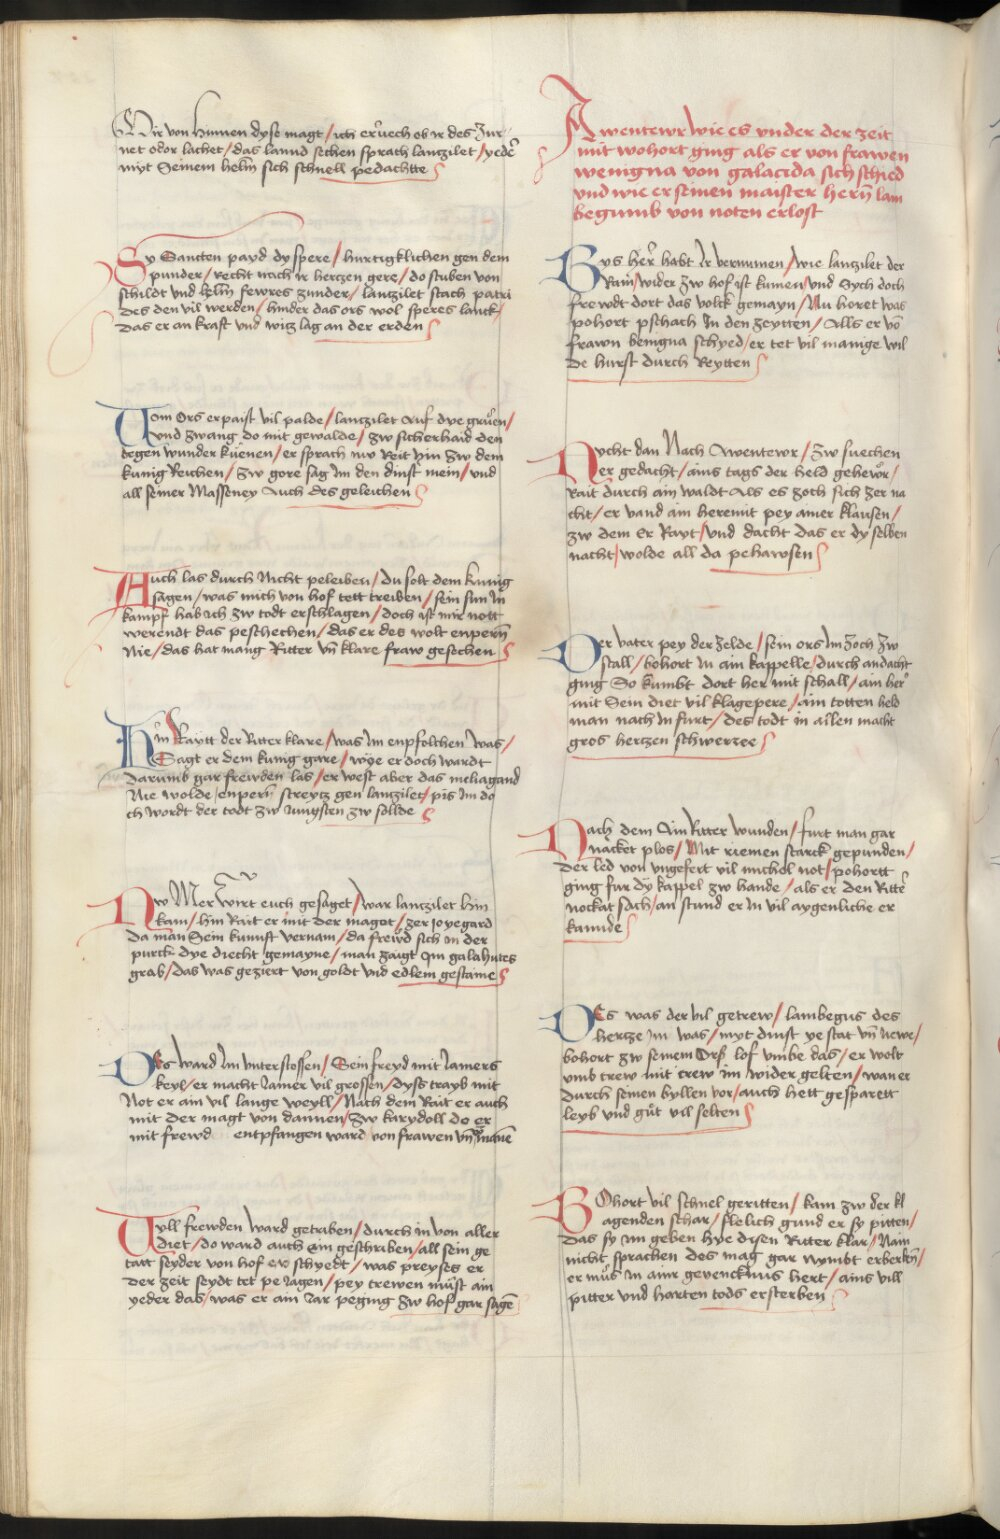 Wir von hinnen dyse magt / ich eruech ob ir des zur
net oder lachet / das lannd sechen sprach lanczilet / yeder
mit Seinem helm sich schnell pedachtte
Sy Sancten payd dy spere / hurtigklichen gen dem
punder / recht nach ir herczen gere / do stuben von
schildt vnd helm fewres zunder / lanczilet stach patri
des den vil werden / hinder das ors wol speres lanck /
das er an kraft vnd wicz lag an der erden
Vom Ors erpaist vil palde / lanczilet Auf dye gruen /
vnd zwang do mit gewalde / zw sicherhaid den
degen wunder kuenen / er sprach nw Reit hin zw dem
kunig Reichen / zw gore sag Im den dinst mein / vnd
all seiner Masseney Auch des geleichen
Auch las durch Nicht peleiben / du solt dem kunig
sagen / was mich von hof tett treiben / sein sun In
kampf hab ich zw todt erschlagen / doch ist mir nott
werendt das peschechen / das er des wolt enpern
Nie / das hat mang Ritter vn klare fraw gesechen
Hin Raytt der Ritter klare / was Im enpfolchen was /
Sagt er dem kunig gare / wye er doch wardt
darumb gar frewden las / er west aber das meliagand
Nie wolde enpern streytz gen lanzilet / pis Im do
ch wordt der todt zw Jungsten zw sollde
Nw Mer wirt euch gesaget / war lanczilet hin
kam / hin Rait er mit der magot / zer Joyegard
da man Sein kunft vernam / da frewd sich in der
purck dye diecht gemayne / man zaigt Im galahutes
grab / das was geziert von goldt vnd edlem gestaine
Des ward Im vnterstossen / Sein freyd mit Jamers
keyl / er macht Jamer vil grossen / dyss trayb mit
Not er ain vil lange weyll / Nach dem Rait er auch
mit der magt von dannen / zw karydoll do er
mit frewd entpfangen ward von frawen vn manen
Vyll frewden ward getriben / durch in von aller
diet / do ward auch ein geschriben / all sein ge
tatt seyder von hof er schyedt / was preyses er
der zeit seydt tet pe Jagen / pey trewen müst ain
yeder das / was er ain Jar peging zw hof gar sagen
Awentewr wie es vnder der zeit
mit wohort ging als er von frawen
wenigna von galacida sich schied
vnd wie er seinen maister hern lam
begumb von noten erlost
Bys her habt Ir vernumen / wie lanczilet der
Rain / wider zw hof ist kumen / vnd Sych doch
frewdt dort das volck gemayn / Nu horet was
pohort pschach In den zeytten / Alls er von
frawn benigna schyed / er tet vil manige wil
de hurst durch Reytten
Nycht dan Nach Awentewr / zw suechen
er gedacht / ains tags der held gehewr /
Rait durch ain waldt Als es zoch sich zer na
cht / er vand ain heremit pey ainer klausen /
zw dem Er Rayt / vnd dacht das er dy selben
nacht / wolde all da pehawsen
Der vater pey der zelde / sein ors Im zoch zw
stall / bohort in ain kappelle / durch andacht
ging So kumbt dort her mit schall / ain her
mit Sein diet vil klagepere / ain totten held
man nach In furt / des todt in allen macht
gros herczen schwerzee
Nach dem Ain Ritter wunden / furt man gar
nacket plos / Mit riemen starck gepunden /
der led von vngefert vil michel not / pohortt
ging fur dy kappel zw hande / als er den Ritter
nockat sach / an stund er In vil aygenliche er
kannde
Des was der vil getrew / lambegus des
hertze In was / myt dinst ye stat vn newe /
bohort zw seinem Ors lof vmbe das / er wolt
vmb trew mit trew im wider gelten / wan er
durch seinen byllen vor / auch hett gesparett
leyb vnd gut vil selten
Bohort vil schnel geritten / kam zw der kl
agenden schar / flelich gund er sy pitten /
das sy im geben hye disen Ritter klar / Nain
nicht sprachen des mag gar nymbt erberben /
er muos in ainr gevencknus hert / ains vill
pitter vnd harten tods ersterben